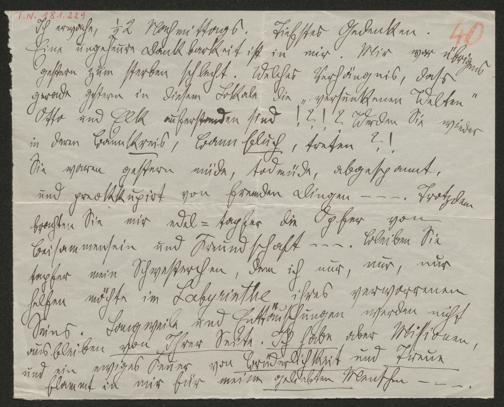 I.N. 181.229
40
Ich erwache, ½2 Nachmittags. Tiefstes Gedenken.
Eine ungeheure Dankbarkeit ist in mir. Mir war übrigens
gestern zum sterben schlecht. Welches Verhängnis, dass
gerade gestern in diesem Lokale die „versunkenen Welten"
Otto und auferstanden sind !?!? Werden Sie wieder
in deren Bannkreis, Bannfluch, treten ?!
Sie waren gestern müde, todmüde, abgespannt,
und preokkupirt von fremden Dingen — — —. Trotzdem
brachten Sie mir edel=tapfer die Opfer von
Beisammensein und Freundschaft — — —. Bleiben Sie
tapfer mein Schwesterchen, dem ich nur, nur, nur
helfen möchte im Labyrinthe ihres verworrenen
Seins. Langweile und Enttäuschungen werden nicht
ausbleiben von Ihrer Seite. Ich habe aber Missionen,
und ein ewiges Feuer von Brüderlichkeit und Treue
flammt in mir für meine geliebten Menschen — — —.